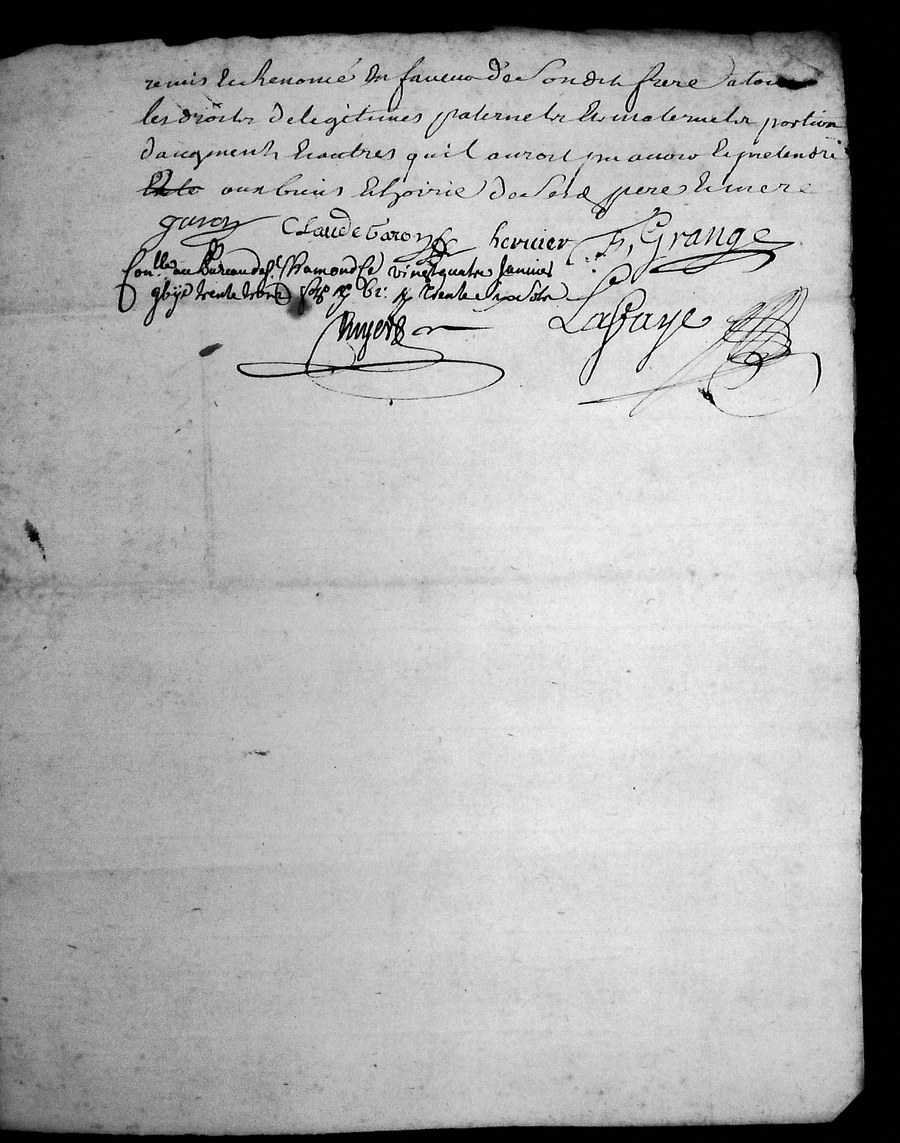 remis et Renoncé En faveur de Son dit frere a tou
les droits de legitimes paternels Et maternels portion
daugments Et autres quil auroit pu avoir Et pretendre
aux biens Et hoirie de Sesd pere Et mere
garon Claude Garon hervier F, Grange
Con.lle au Bureau de St. Chamond Le vingt quatre Janvier
trente trois trente Six Sols
Lafaye